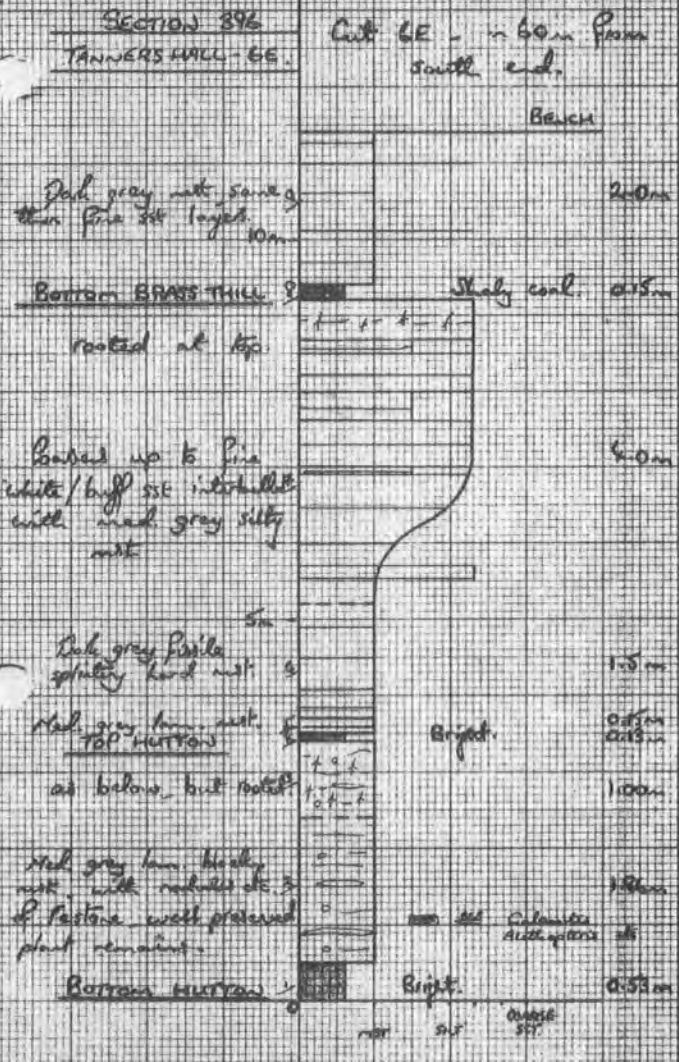 SECTION 396
TANNERS HALL - 6E.
Cut 6E - ~ 60m from
south end.
BENCH
Dark grey mst, some
thin fine sst layers.
2.0m
10m
BOTTOM BRASS THILL
Shaly coal. 0.15m
rooted at top.
Passes up to fine
white/buff sst interbedded
with med. grey silty
mst
4.0m
5m
Dark grey fissile
splintery hard mst.
1.5m
Med. grey lam. mst.
TOP HUTTON
Bright.
0.13m
as below, but rooted
1.00m
Med. grey lam. blocky
mst. with nodules etc.
of Festone, well preserved
plant remains.
Calamites
BOTTOM HUTTON
Bright. 0.53m
0
MST SILT COARSE
SST.